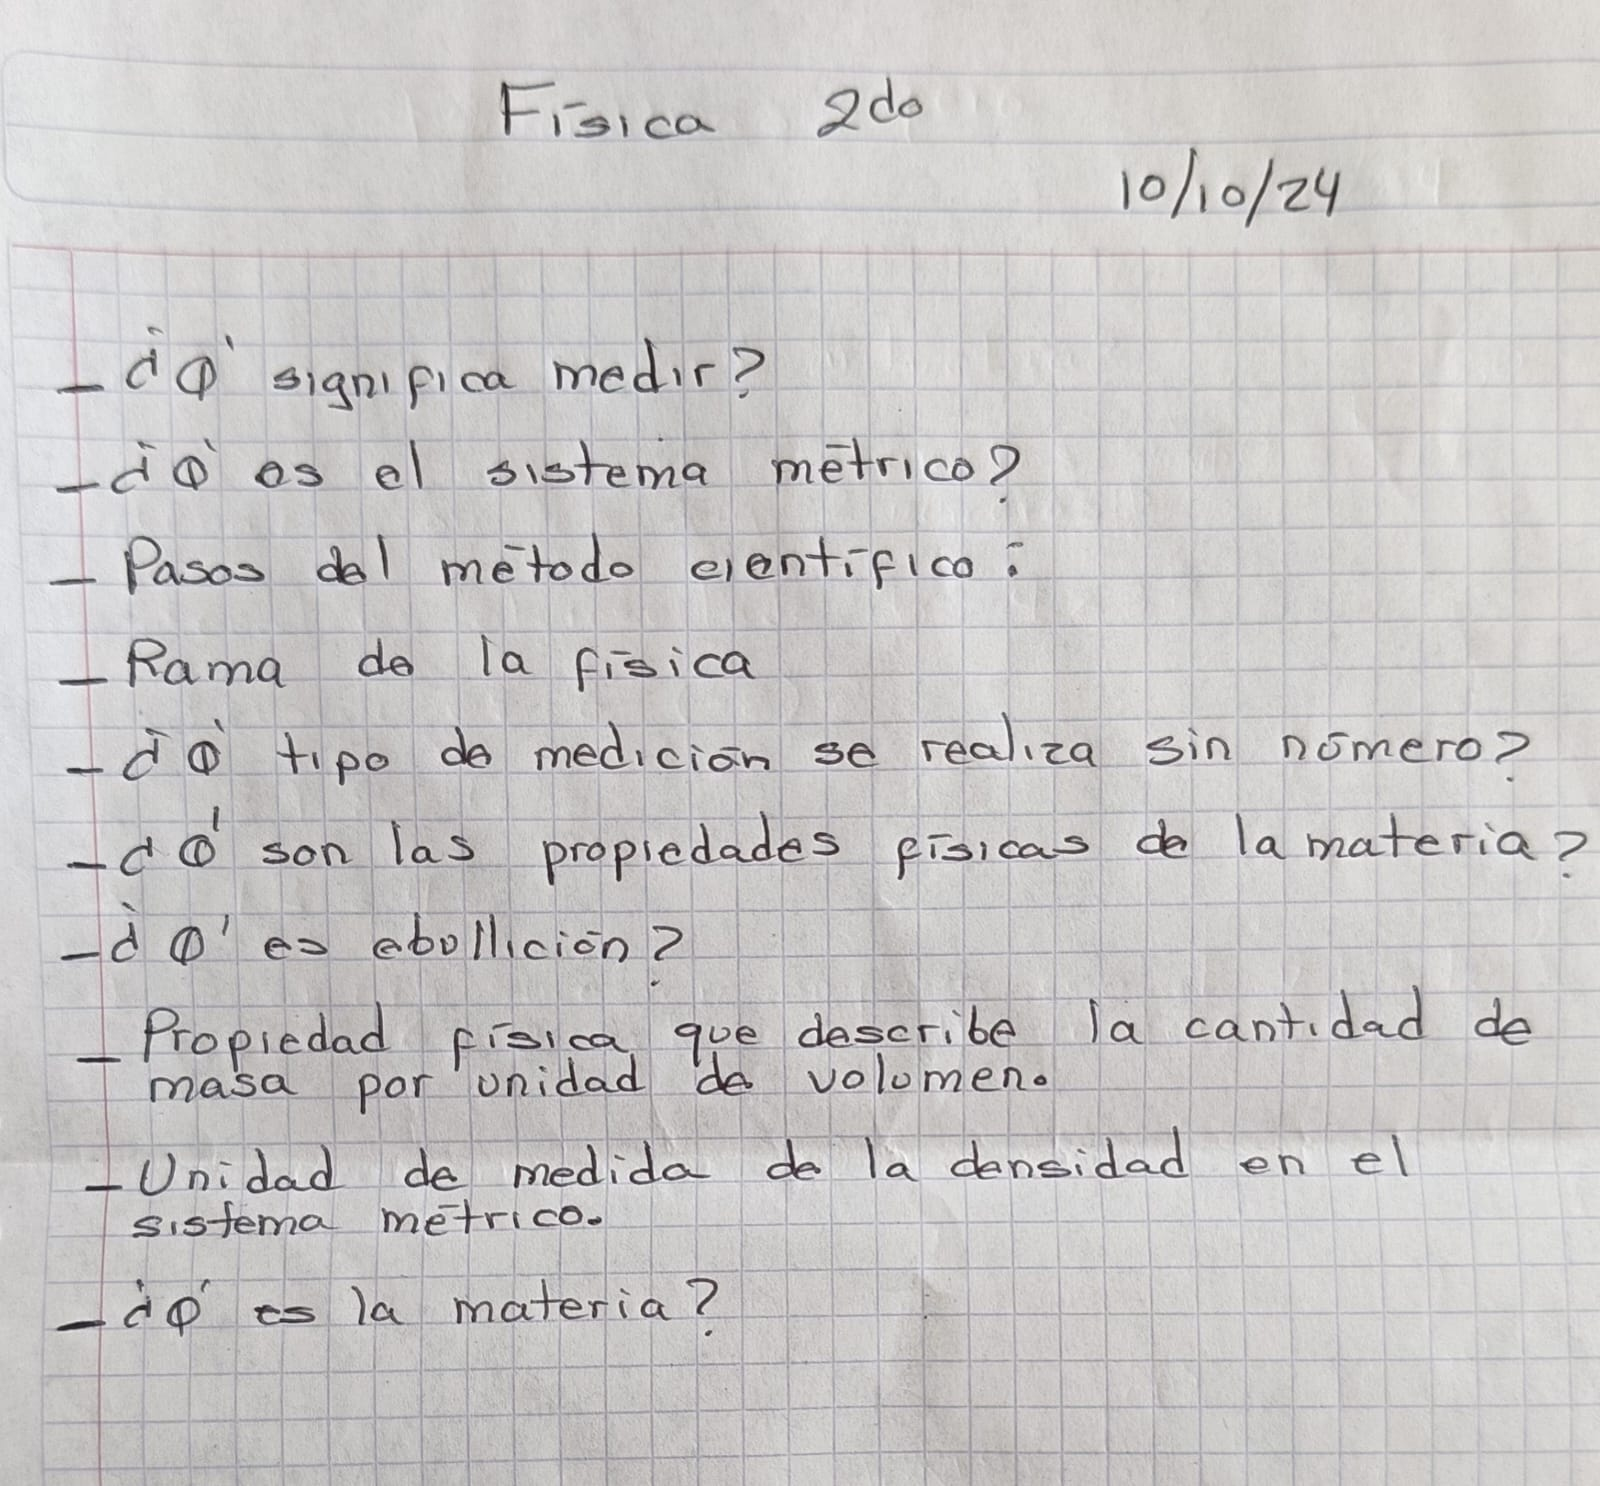 Física 2do
10/10/24
- ¿Q' significa medir?
- ¿Q' es el sistema métrico?
- Pasos del método científico:
- Rama de la física
- ¿Q' tipo de medición se realiza sin número?
- ¿Q' son las propiedades físicas de la materia?
- ¿Q' es ebullición?
- Propiedad física que describe la cantidad de
masa por unidad de volumen.
- Unidad de medida de la densidad en el
sistema métrico.
- ¿Q' es la materia?